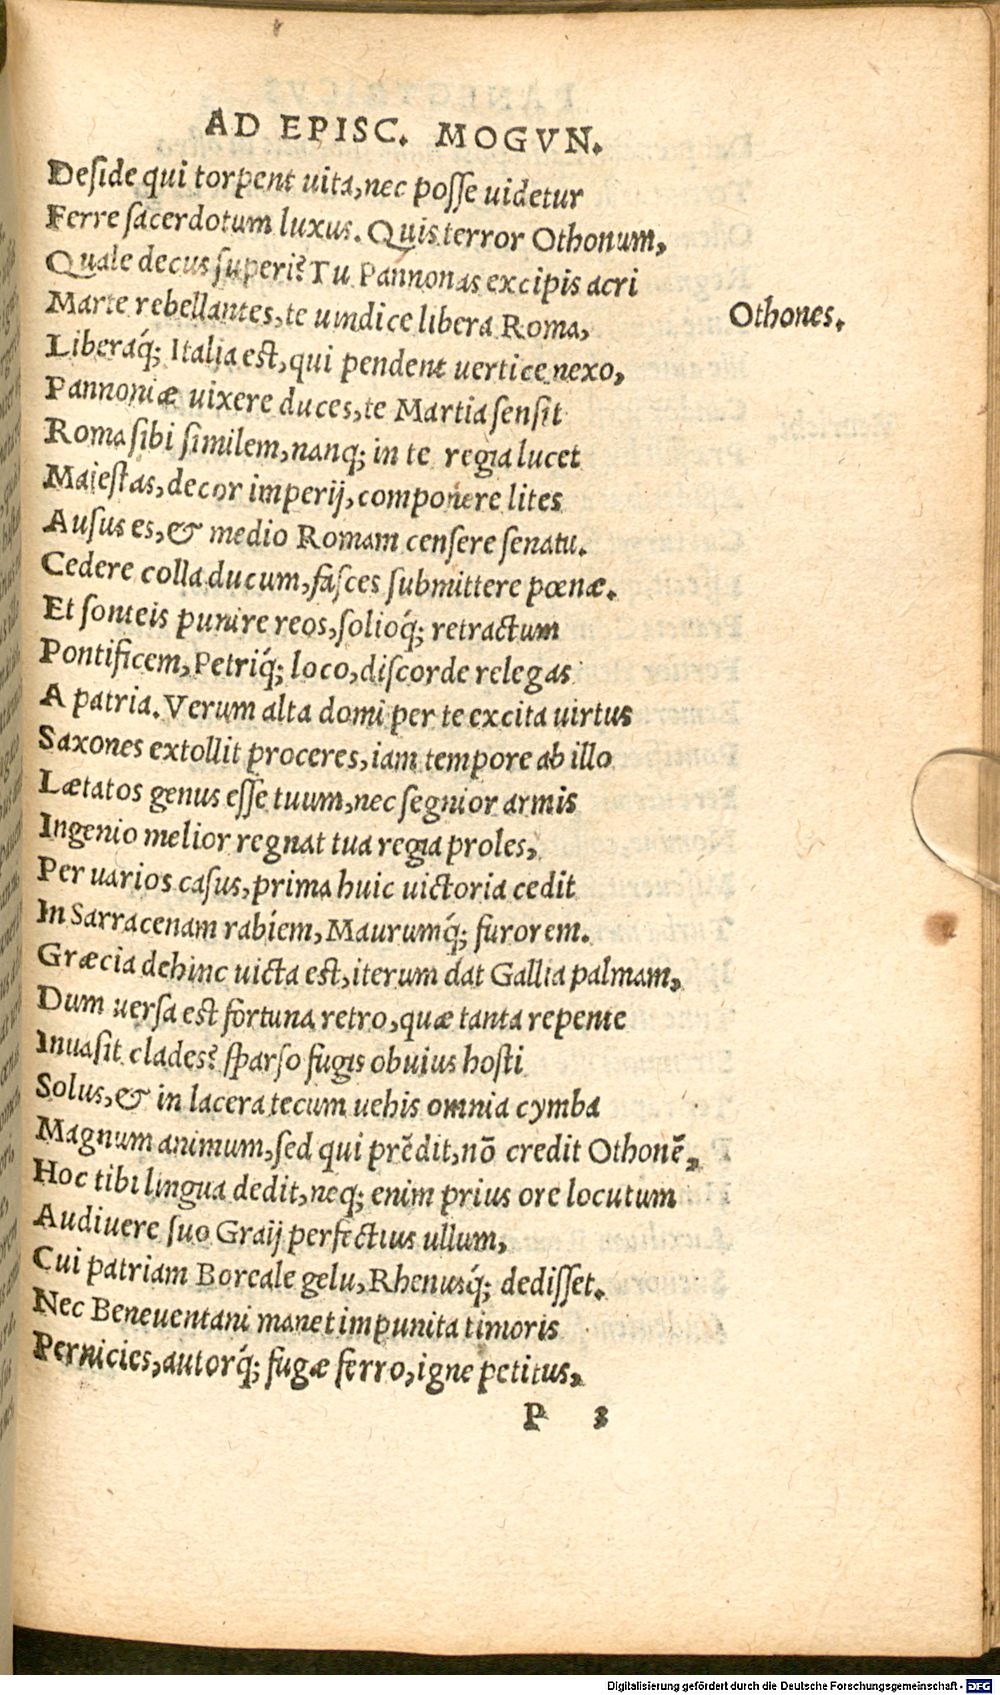 AD EPISC. MOGVN.
Deside qui torpent uita, nec posse uidetur
Ferre sacerdotum luxus. Quis terror Othonum,
Quale decus superi? Tu Pannonas excipis acri
Marte rebellantes, te uindice libera Roma,
Othones.
Liberaq́; Italia est, qui pendent uertice nexo,
Pannoniæ uixere duces, te Martia sensit
Roma sibi similem, nanq; in te regia lucet
Maiestas, decor imperij, componere lites
Ausus es, & medio Romam censere senatu.
Cedere colla ducum, fasces submittere pœnæ.
Et sonteis punire reos, solioq́; retractum
Pontificem, Petriq́; loco, discorde relegas
A patria. Verum alta domi per te excita uirtus
Saxones extollit proceres, iam tempore ab illo
Lætatos genus esse tuum, nec segnior armis
Ingenio melior regnat tua regia proles,
Per uarios casus, prima huic uictoria cedit
In Sarracenam rabiem, Maurumq́; furorem.
Græcia dehinc uicta est, iterum dat Gallia palmam,
Dum uersa est fortuna retro, quæ tanta repente
Inuasit clades? sparso fugis obuius hosti
Solus, & in lacera tecum uehis omnia cymba
Magnum animum, sed qui prẽdit, nõ credit Othonẽ,
Hoc tibi lingua dedit, neq; enim prius ore locutum
Audiuere suo Graij perfectius ullum,
Cui patriam Boreale gelu, Rhenusq́; dedisset.
Nec Beneuentani manet impunita timoris
Pernicies, autorq́; fugæ ferro, igne petitus,
P 3
Digitalisierung gefördert durch die Deutsche Forschungsgemeinschaft - DFG